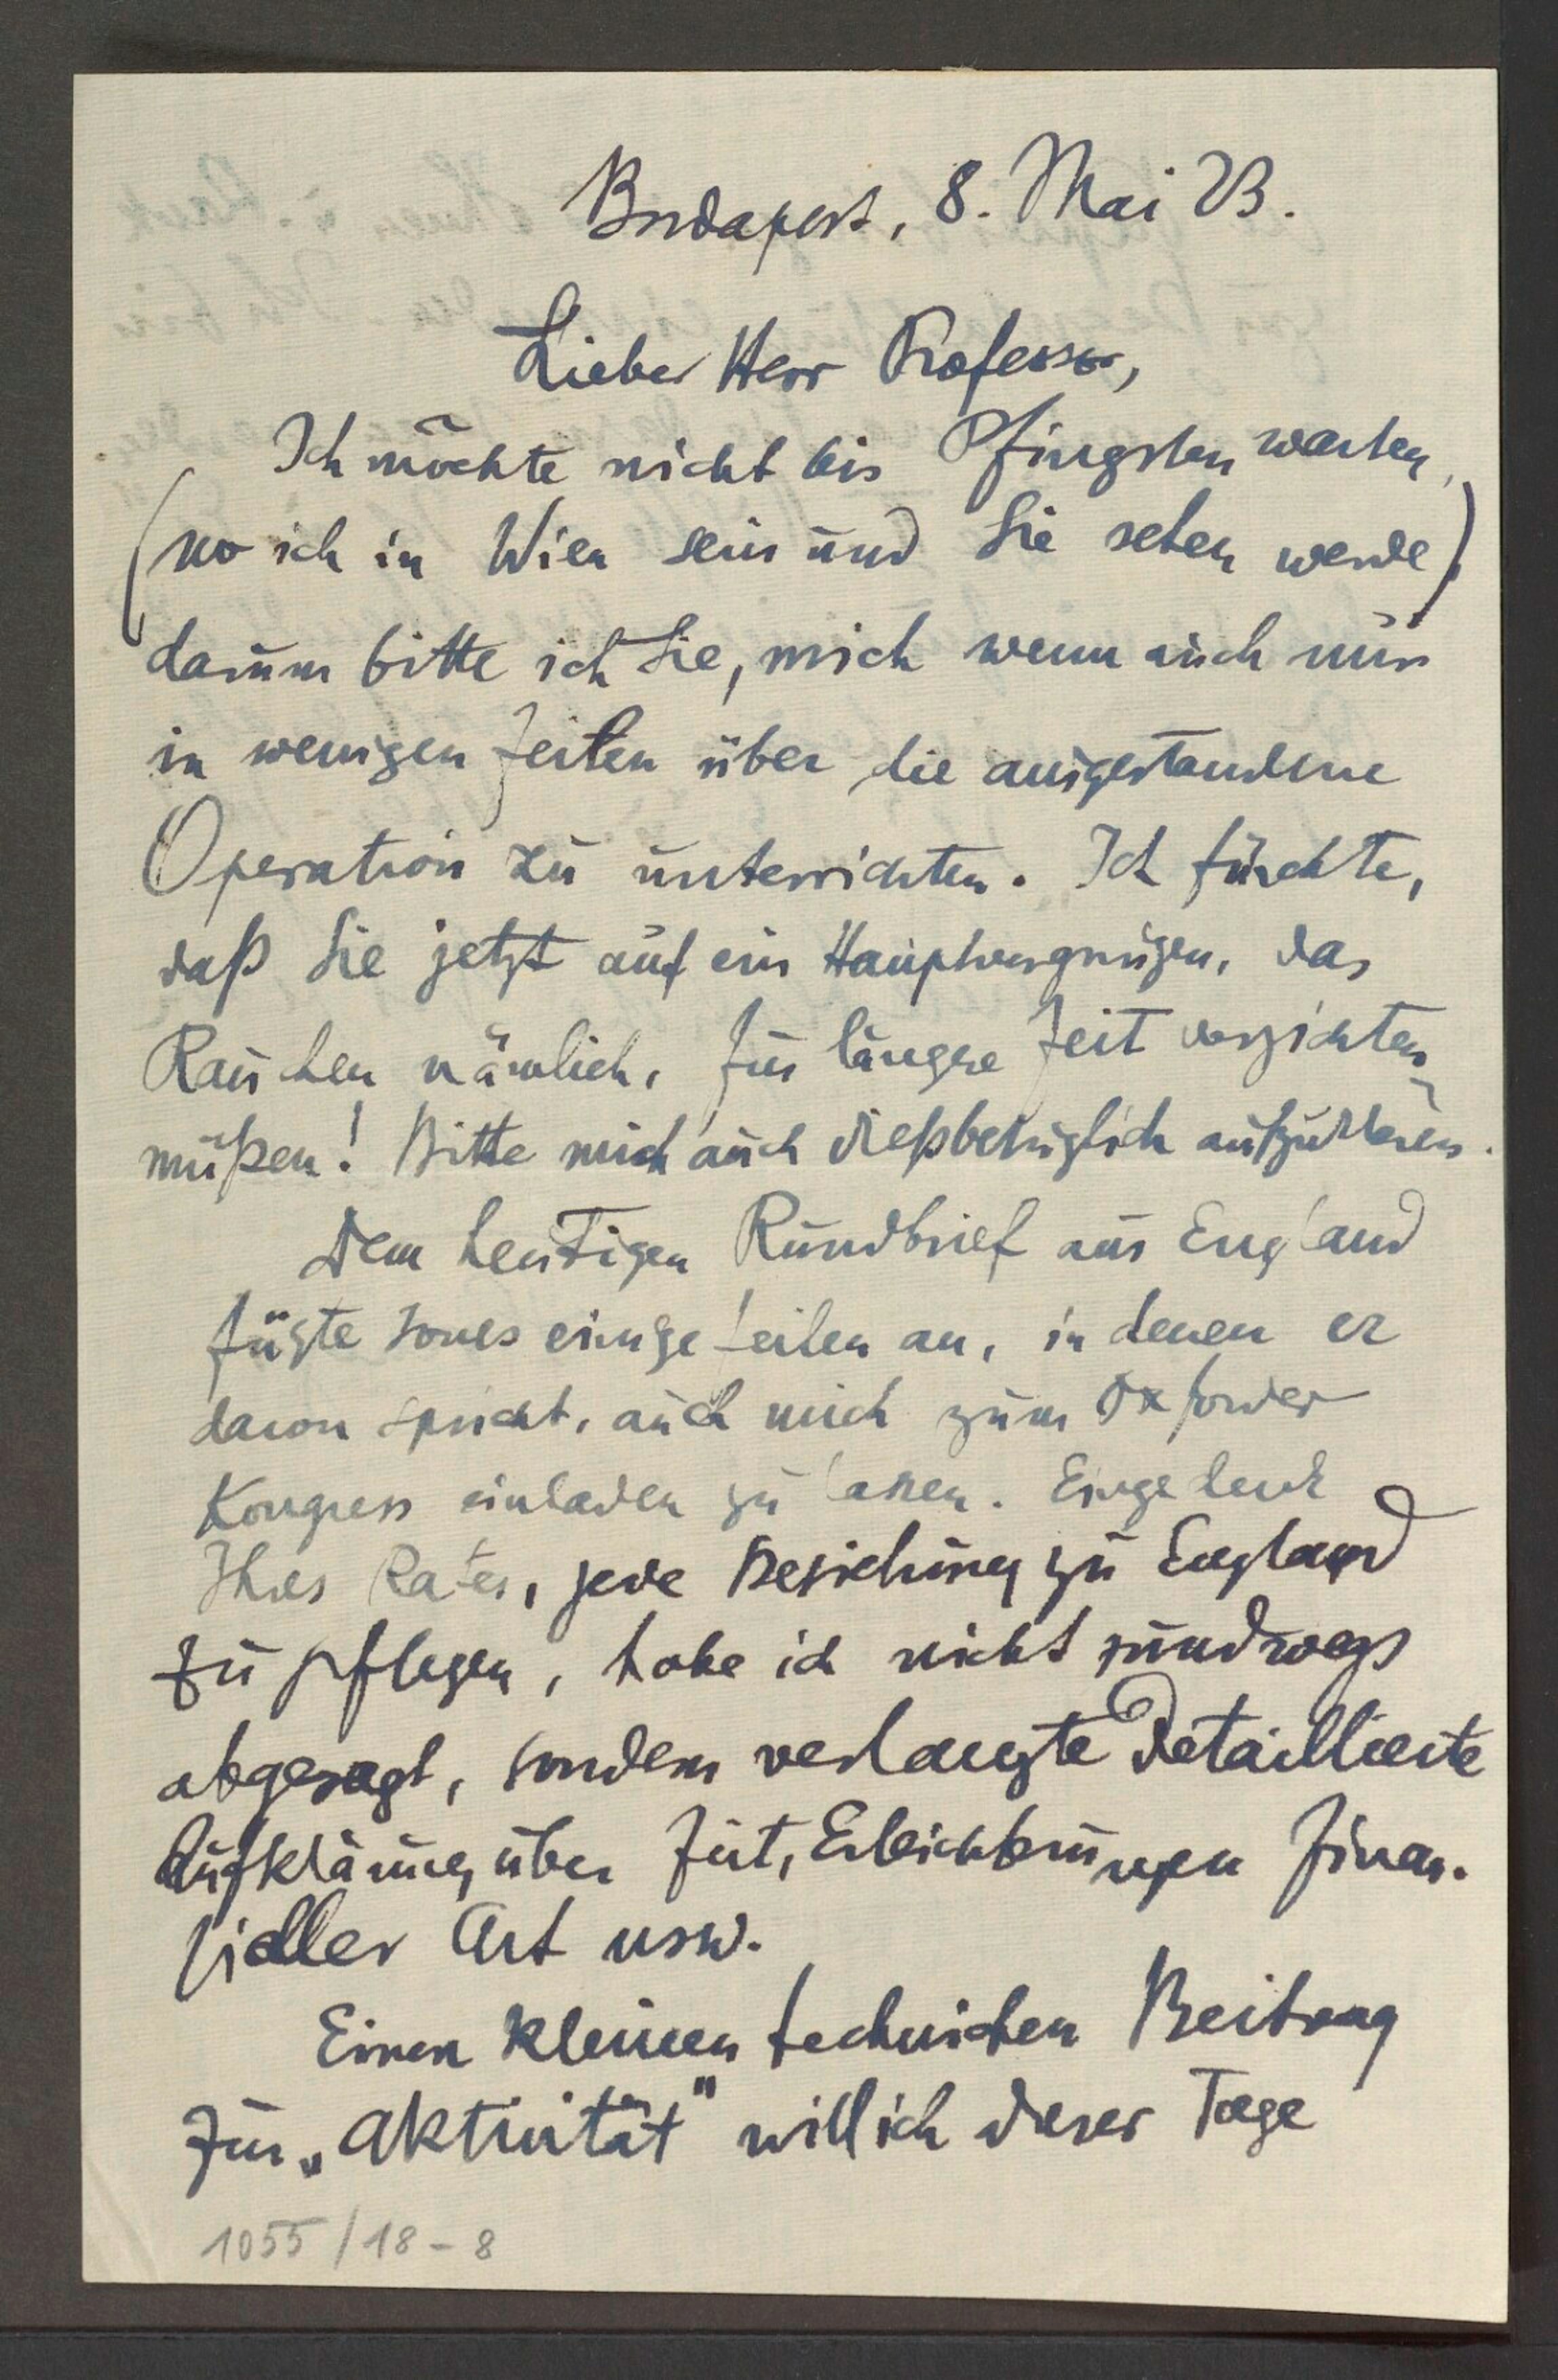 Budapest, 8. Mai 23.
Lieber Herr Professor,
Ich möchte nicht bis Pfingsten warten,
(wo ich in Wien sein und Sie sehen werde)
darum bitte ich Sie, mich wenn auch nur
in wenigen Zeilen über die ausgestandene
Operation zu unterrichten. Ich fürchte,
daß Sie jetzt auf ein Hauptvergnügen, das
Rauchen nämlich, für längere Zeit verzichten
müßen! Bitte mich auch dießbezüglich aufzuklären.
Dem heutigen Rundbrief aus England
fügte Jones einige Zeilen an, in denen er
davon spricht, auch mich zum Oxforder
Kongress einladen zu lassen. Eingedenk
Ihres Rates, jede Beziehung zu England
zu pflegen, habe ich nicht rundwegs
abgesagt, sondern verlangte detaillierte
Aufklärung über Zeit, Erleichterungen finan-
zieller Art usw.
Einen kleinen technischen Beitrag
zur „Aktivität" will ich dieser Tage
1055/18-8